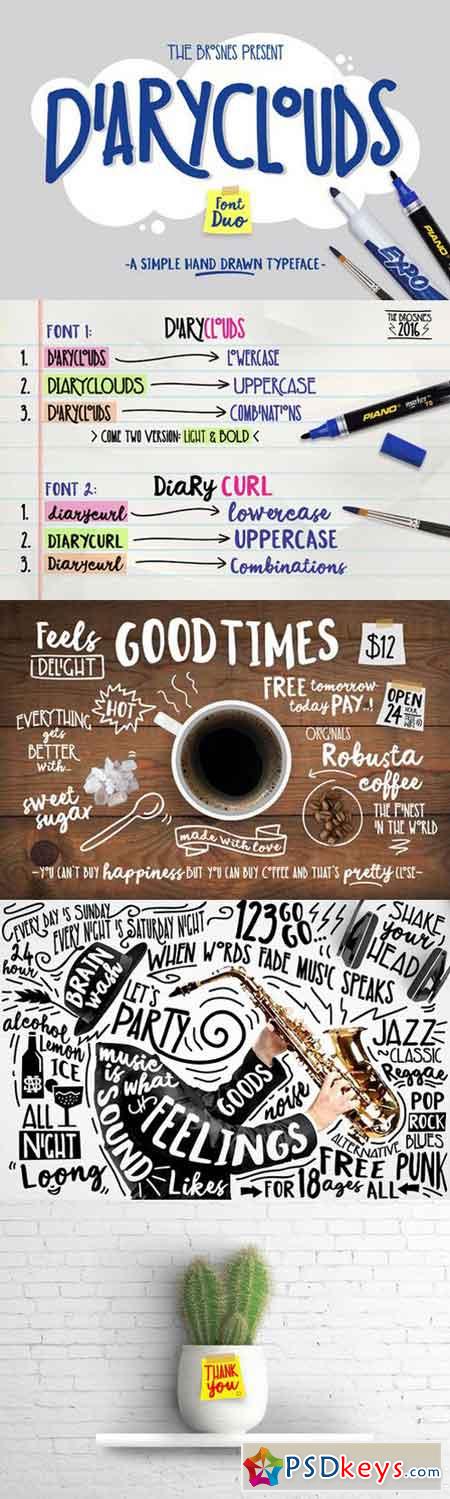 THE BROSNES PRESENT
DIARYCLOUDS
Font
Duo
EXPO
PIANO
-A SIMPLE HAND DRAWN TYPEFACE-
FONT 1: DIARYCLOUDS
THE BROSNES
2016
1. DIARYCLOUDS LOWERCASE
2. DIARYCLOUDS UPPERCASE
3. DIARYCLOUDS COMBINATIONS
PIANO marker 70
> COME TWO VERSION: LIGHT & BOLD <
FONT 2: DiaRy CURL
1. diarycurl lowercase
2. DIARYCURL UPPERCASE
3. Diarycurl Combinations
Feels
DELIGHT
GOOD TIMES
$12
FREE tomorrow
today PAY..!
OPEN
24
HOUR
HOT
EVERYTHING
gets
BETTER
with...
sweet
sugar
ORIGINALS
Robusta
coffee
THE FINEST
IN THE WORLD
made with love
-YOU CAN'T BUY happiness BUT YOU CAN BUY COFFEE AND THAT'S pretty CLOSE-
EVERY DAY IS SUNDAY
EVERY NIGHT IS SATURDAY NIGHT
123 GO
GO...
SHAKE
your
HEAD
24
hour
BRAIN
wash
WHEN WORDS FADE MUSIC SPEAKS
LET'S
PARTY
alcohol
Lemon
ICE
JAZZ
~CLASSIC
Reggae
music
is what
FEELINGS
SOUND
Likes
GOODS
noise
POP
ROCK
BLUES
ALTERNATIVE
ALL
NIGHT
"Loong"
FREE PUNK
FOR 18 ages ALL
THANK
you
PSDkeys.com